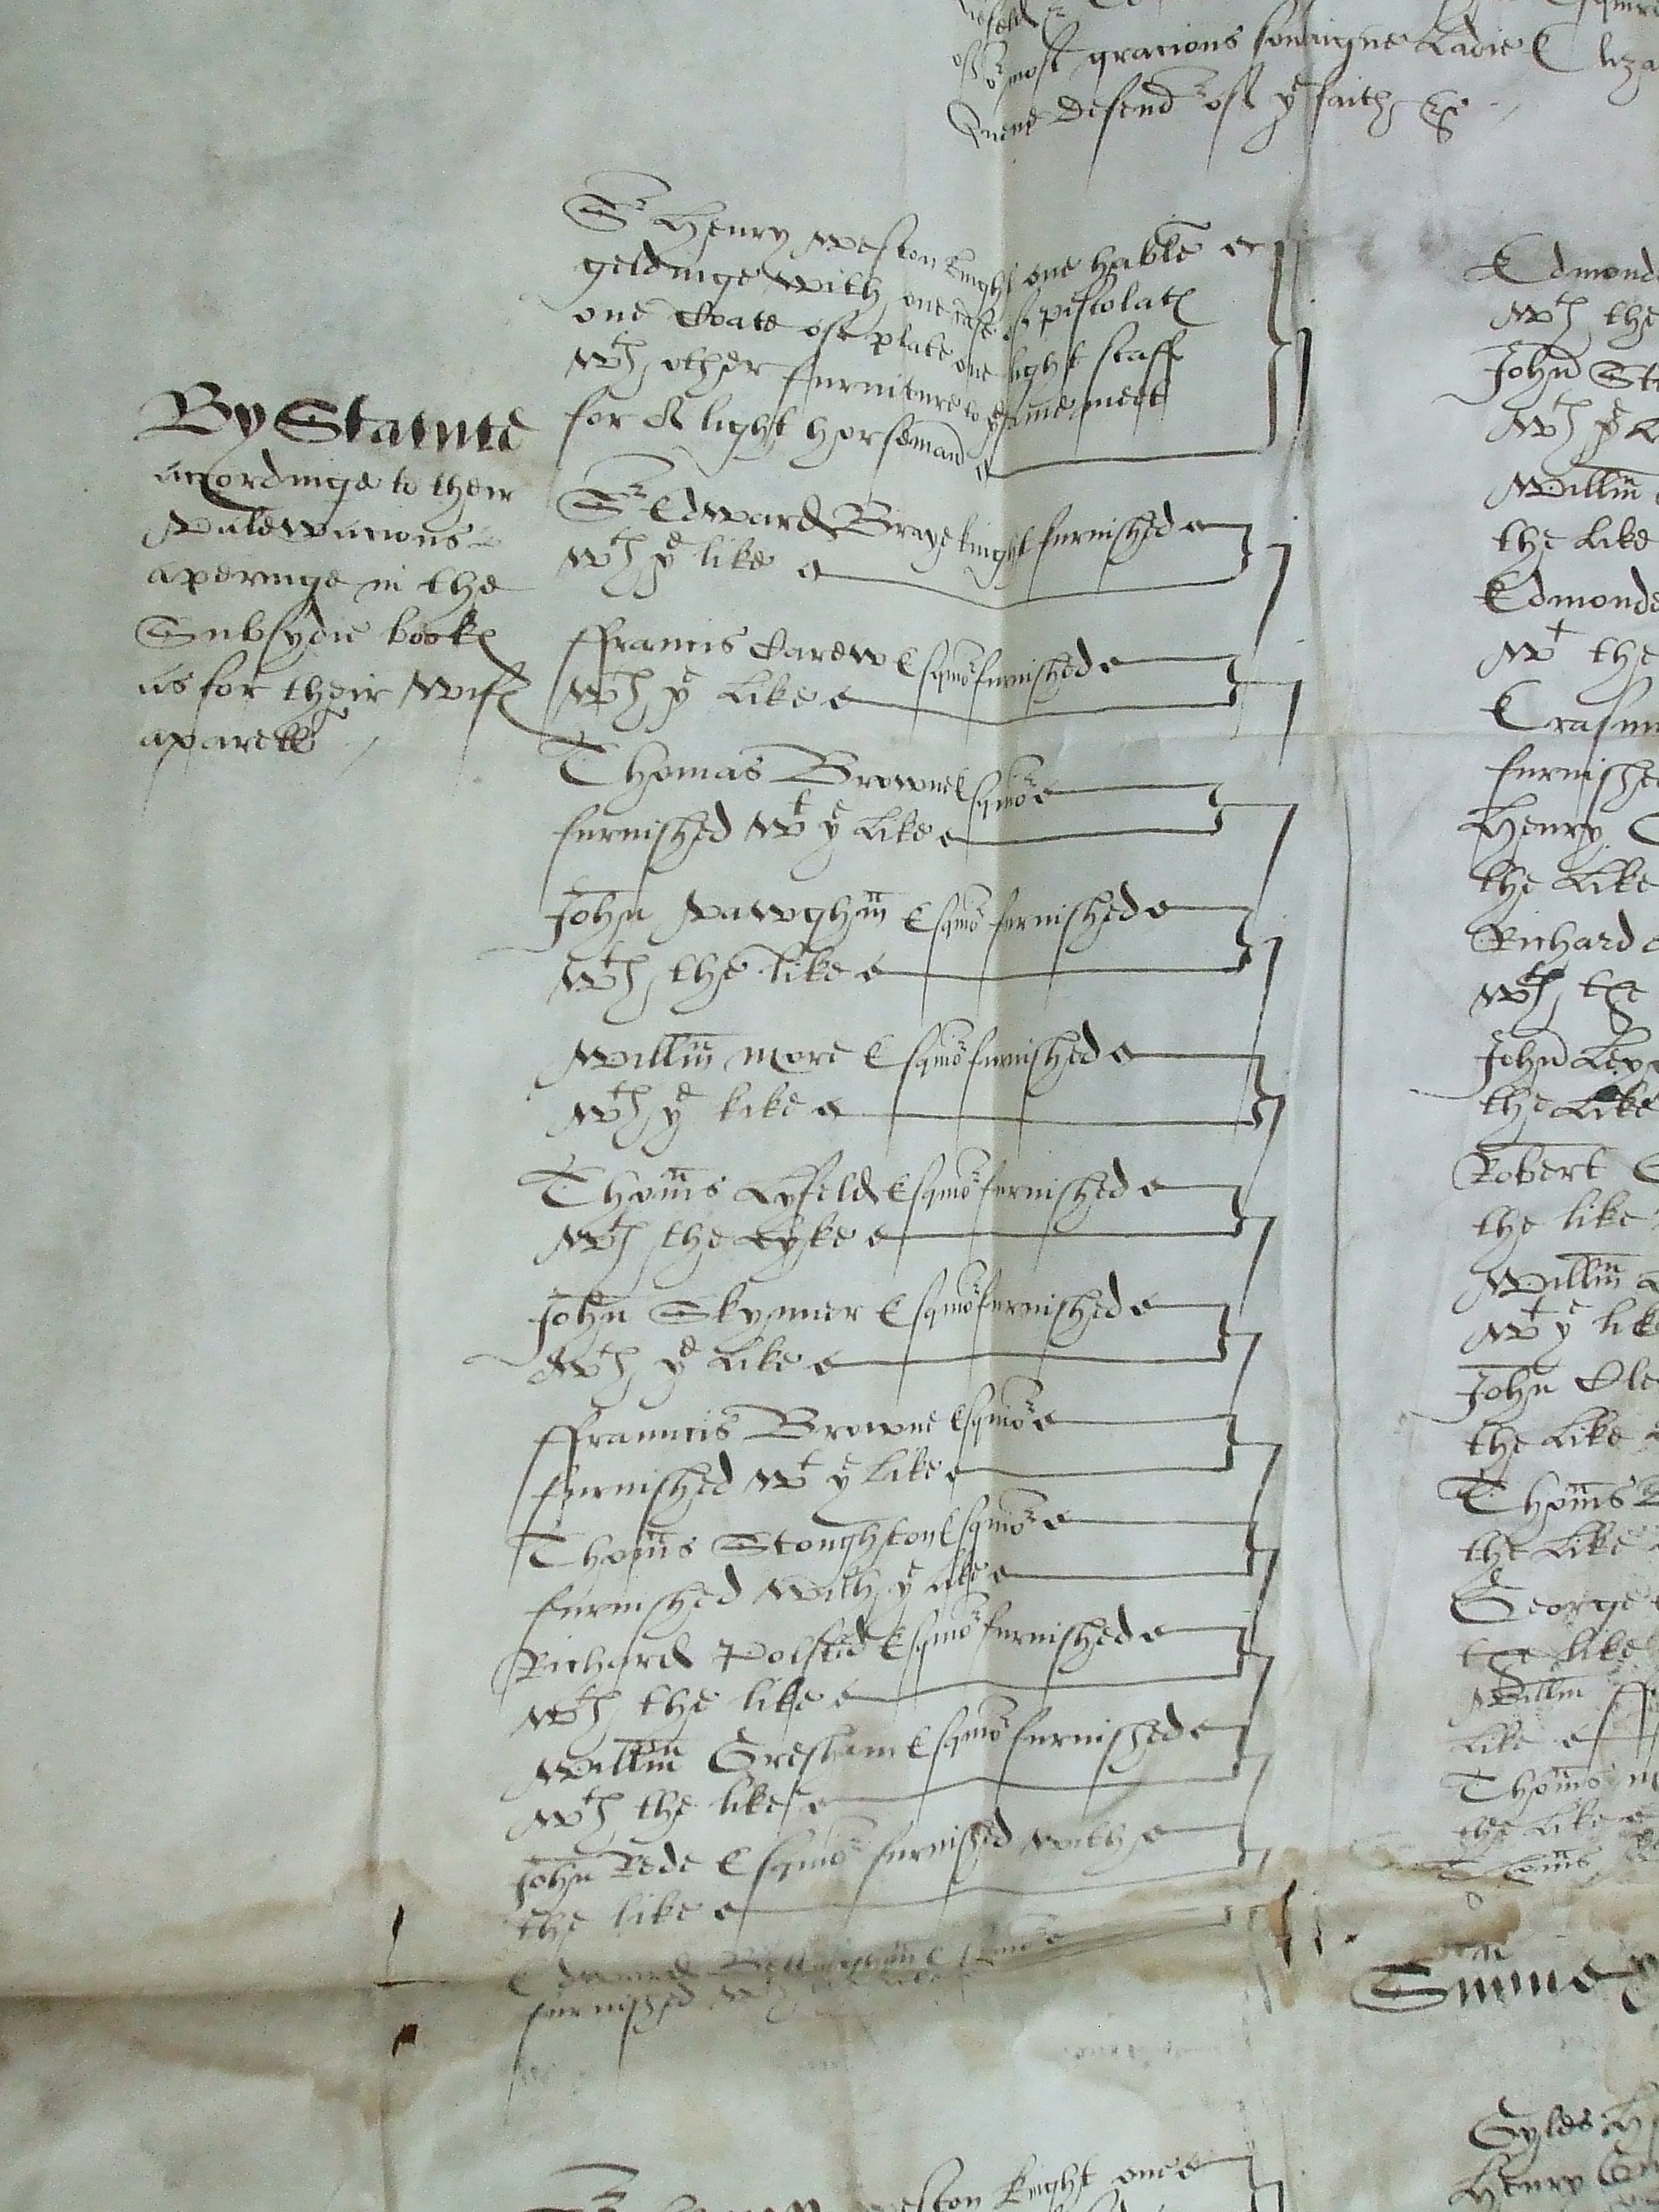 most gracious soueraigne Ladie Eliza
Quene Defend^r of y^e faith &c
By Statute
accordinge to their
Valewacions
aperinge in the
Subsydie book℮
as for their wif℮
aparell
S^r Henry Weston knight one hable
geldinge with one case of pistolat℮
one Coate of plate one light staff
w^th other furniture to y^e same meet
for A light horseman
S^r Edward Braye knight furnished
w^th y^e like
ffrancis Carew Esquio^r furnished
w^th y^e Like
Thomas Browne Esquio^r
furnished w^t y^e Like
John Vawghm̄ Esquio^r furnished
w^th the like
Willm̄ more Esquio^r furnished
w^th y^e like
Thom̄s Lyfeld Esquio^r furnished
w^th the Lyke
John Skynner Esquio^r furnished
w^th y^e Like
ffrauncis Browne Esquio^r
furnished w^t y^e like
Thom̄s Stoughton Esquio^r
furnished with y^e like
Richard Polsted Esquio^r furnished
w^th the like
Willm̄ Gresham Esquio^r furnished
w^th the like
John Rede Esquio^r furnished with
the like
Edward
furnished w^th
weston knight one
Edmond
w^th the
John
w^th y^e
Willm̄
the Like
Edmonde
w^t the
Erasm
furnished
Henry
the Like
Richard
w^th the
John
the Like
Robert
the like
Willm̄
w^t y^e like
John
the Like
Thom̄s
the Like
George
the like
Willm̄
Like
Thom̄s
the Like
Thom̄s
Sum̄e
Gyles
Henry